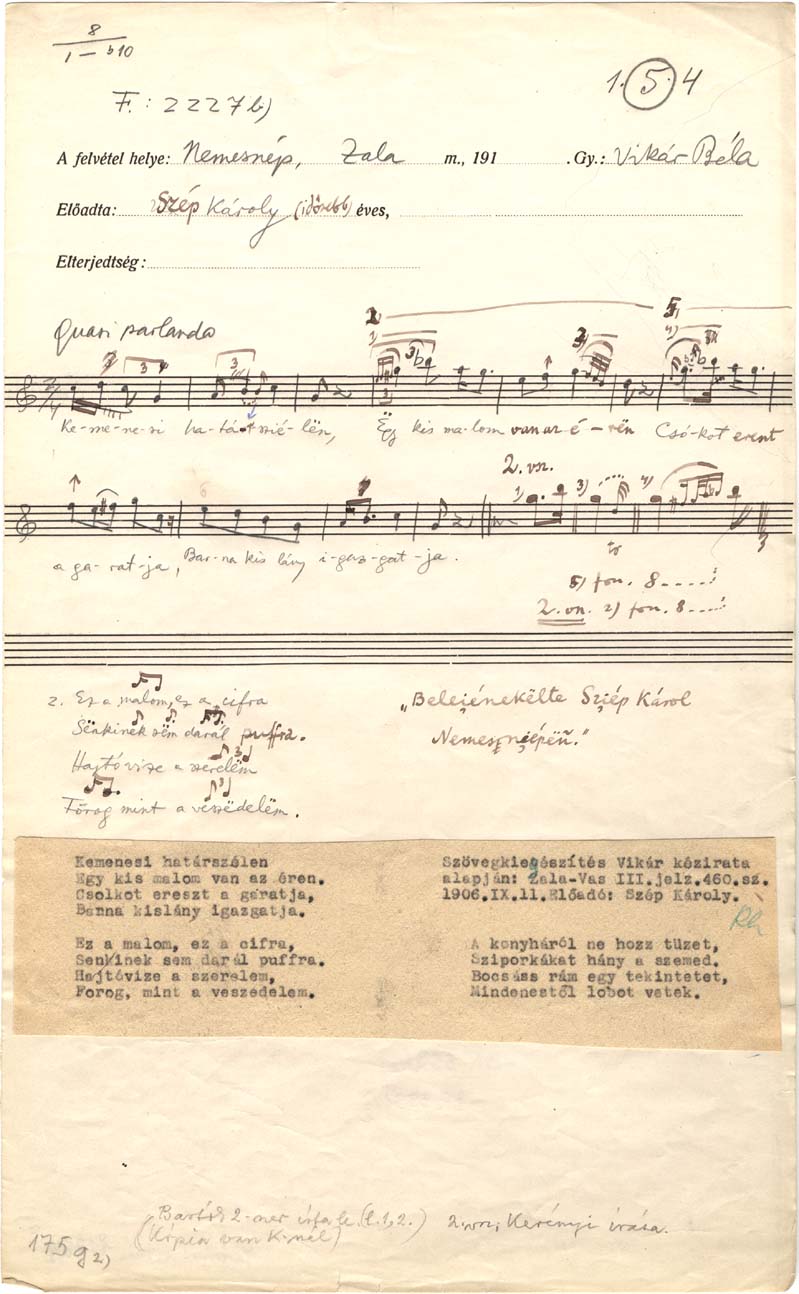 8
I — b10
F.: 2227b)
1. 5. 4
A felvétel helye: Nemesnép, Zala m., 191 .Gy.: Vikár Béla
Előadta: Szép Károly (idősebb) éves,
Elterjedtség:
Quasi parlando
Ke-me-ne-si ha-tá-t szié-lën, Ëgy kis ma-lom van az é-rën Csó-kot erent
a ga-rat-ja, Bar-na kis lány i-gaz-gat-ja.
2. vsz.
1) 3) 4)
5) fon. 8
2. vsz. 2) fon. 8
2. Ez a malom, ez a cifra
Sënkinek sëm darál puffra.
Hajtóvize a szerelëm
Forog mint a veszëdelëm.
„Beleiénekëlte Sziép Károl
Nemesniépën."
Kemenesi határszélen
Egy kis malom van az éren.
Csolkot ereszt a garatja,
Banna kislány igazgatja.
Ez a malom, ez a cifra,
Senkinek sem darál puffra.
Hajtóvize a szerelem,
Forog, mint a veszedelem.
Szövegkiegészítés Vikár kézirata
alapján: Zala-Vas III.jelz.460.sz.
1906.IX.11.Előadó: Szép Károly.
Rh
A konyháról ne hozz tüzet,
Sziporkákat hány a szemed.
Bocsáss rám egy tekintetet,
Mindenestől lobot vetek.
Bartók 2-szer írta le (l. 1, 2.) 2. vsz. Kerényi írása.
(Kópia van K-nál)
175 g 2.)